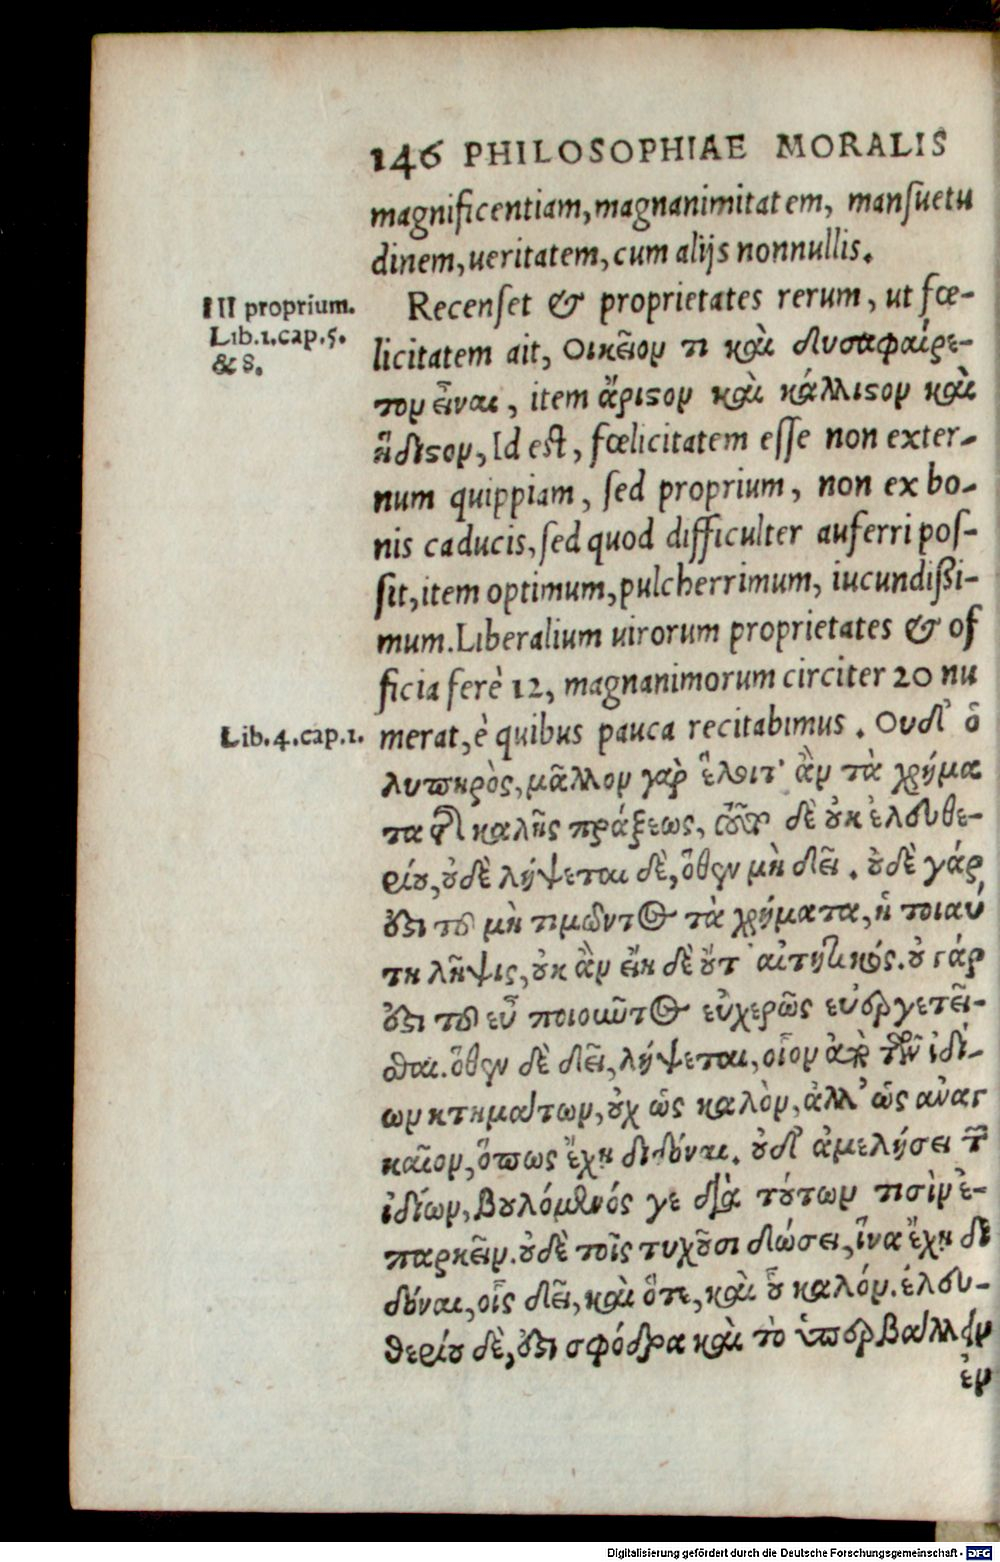 146 PHILOSOPHIAE MORALIS
magnificentiam, magnanimitatem, mansuetu
dinem, ueritatem, cum alijs nonnullis.
III proprium.
Lib.1.cap.5.
& 8.
Recenset & proprietates rerum, ut fœ-
licitatem ait, Οικεῖον τι καὶ δυσαφαίρε-
τον εἶναι, item ἄριστον καὶ κάλλιστον καὶ
ἥδιστον, Id est, fœlicitatem esse non exter-
num quippiam, sed proprium, non ex bo-
nis caducis, sed quod difficulter auferri pos-
sit, item optimum, pulcherrimum, iucundißi-
mum. Liberalium uirorum proprietates & of
ficia ferè 12, magnanimorum circiter 20 nu
Lib.4.cap.1.
merat, è quibus pauca recitabimus. Ουδ' ὁ
λυπηρὸς, μᾶλλον γὰρ ἕλοιτ' ἂν τὰ χρήμα
τα καλῆς πράξεως, δὲ οὐκ ἐλευθε-
ρίου, οὐδὲ λήψεται δὲ, ὅθεν μὴ δεῖ. οὐδὲ γάρ
ὅτι τοῦ μὴ τιμῶντος τὰ χρήματα, ἡ τοιαύ
τη λῆψις, οὐκ ἂν εἴη δὲ οὔτ' αἰτητικός. οὐ γάρ
ὅτι τοῦ εὖ ποιοῦντος εὐχερῶς εὐεργετεῖ-
σθαι. ὅθεν δὲ δεῖ, λήψεται, οἷον ἀπὸ τῶν ἰδί-
ων κτημάτων, οὐχ ὡς καλὸν, ἀλλ' ὡς αναγ
καῖον, ὅπως ἔχη διδόναι. οὐδ' ἀμελήσει τῶν
ἰδίων, βουλόμενός γε διὰ τούτων τισὶν ἐ-
παρκεῖν. οὐδὲ τοῖς τυχοῦσι δώσει, ἵνα ἔχη δι
δόναι, οἷς δεῖ, καὶ ὅτε, καὶ οὗ καλόν. ἐλευ-
θερίου δὲ, ὅτι σφόδρα καὶ τὸ ὑπερβάλλειν
ἐν
Digitalisierung gefördert durch die Deutsche Forschungsgemeinschaft - DFG